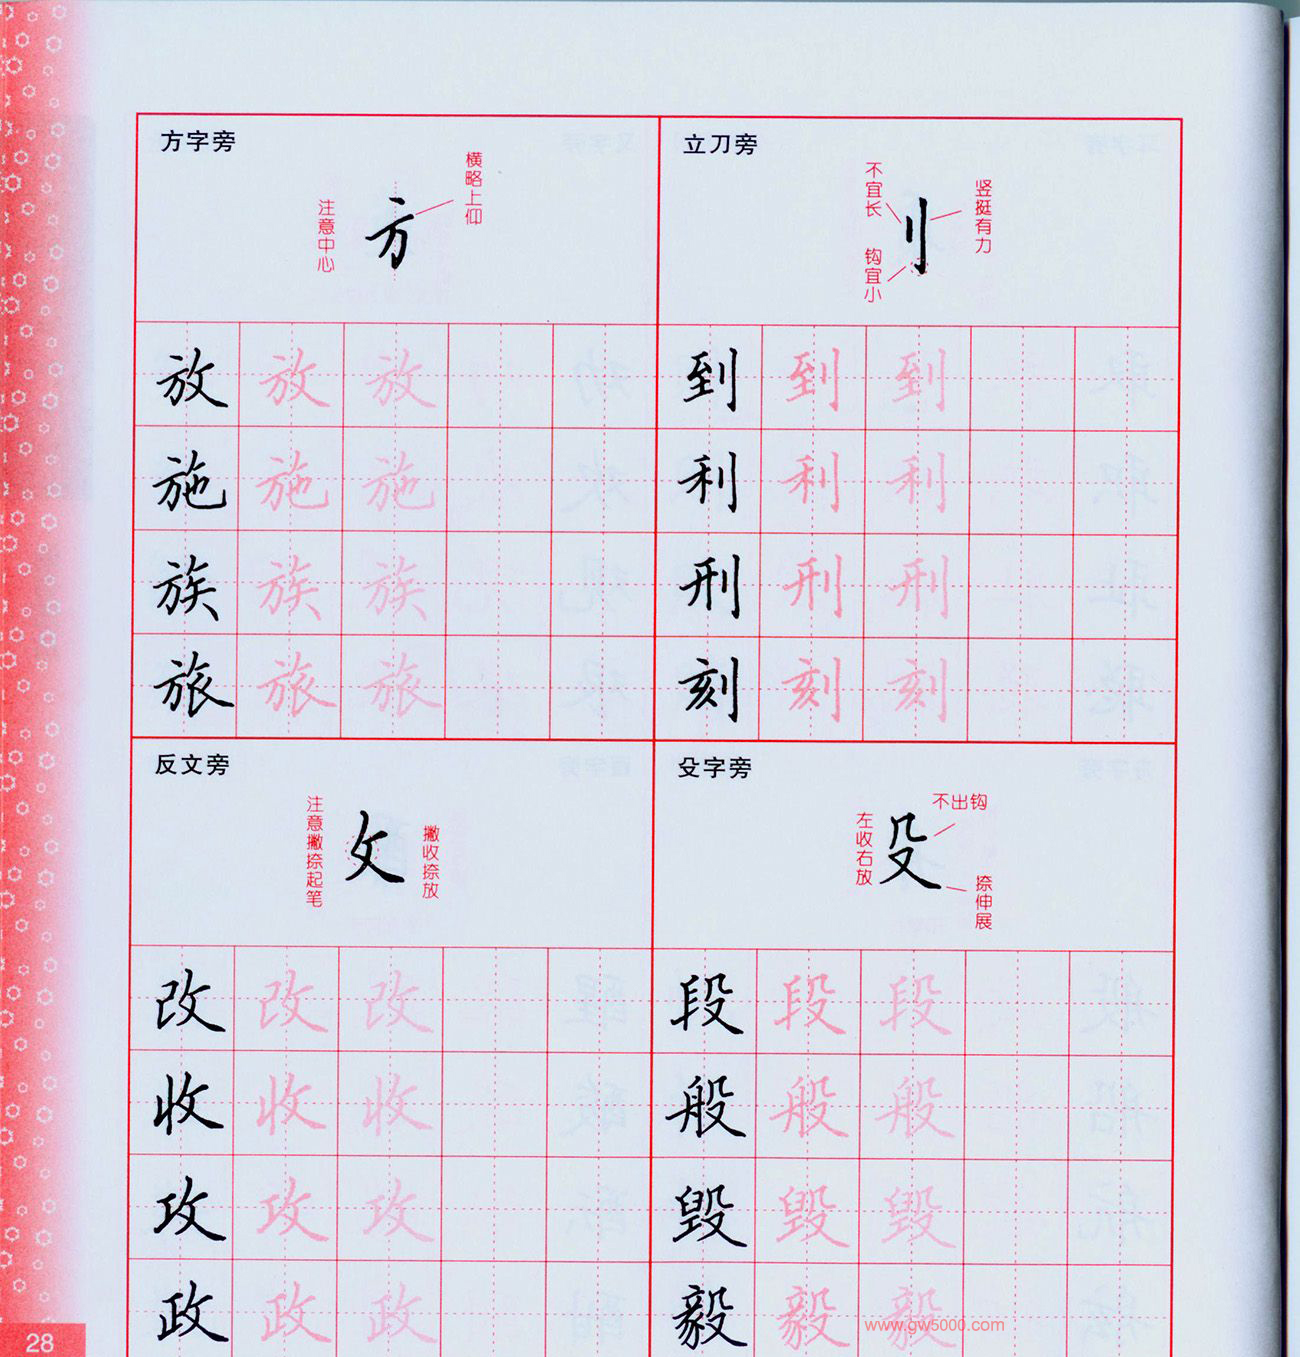 方字旁
横略上仰
注意中心
方
放 放 放
施 施 施
族 族 族
旅 旅 旅
立刀旁
不宜长
竖挺有力
钩宜小
刂
到 到 到
利 利 利
刑 刑 刑
刻 刻 刻
反文旁
注意撇捺起笔
撇收捺放
攵
改 改 改
收 收 收
攻 攻 攻
政 政 政
殳字旁
不出钩
左收右放
捺伸展
殳
段 段 段
般 般 般
毁 毁 毁
毅 毅 毅
www.gw5000.com
28